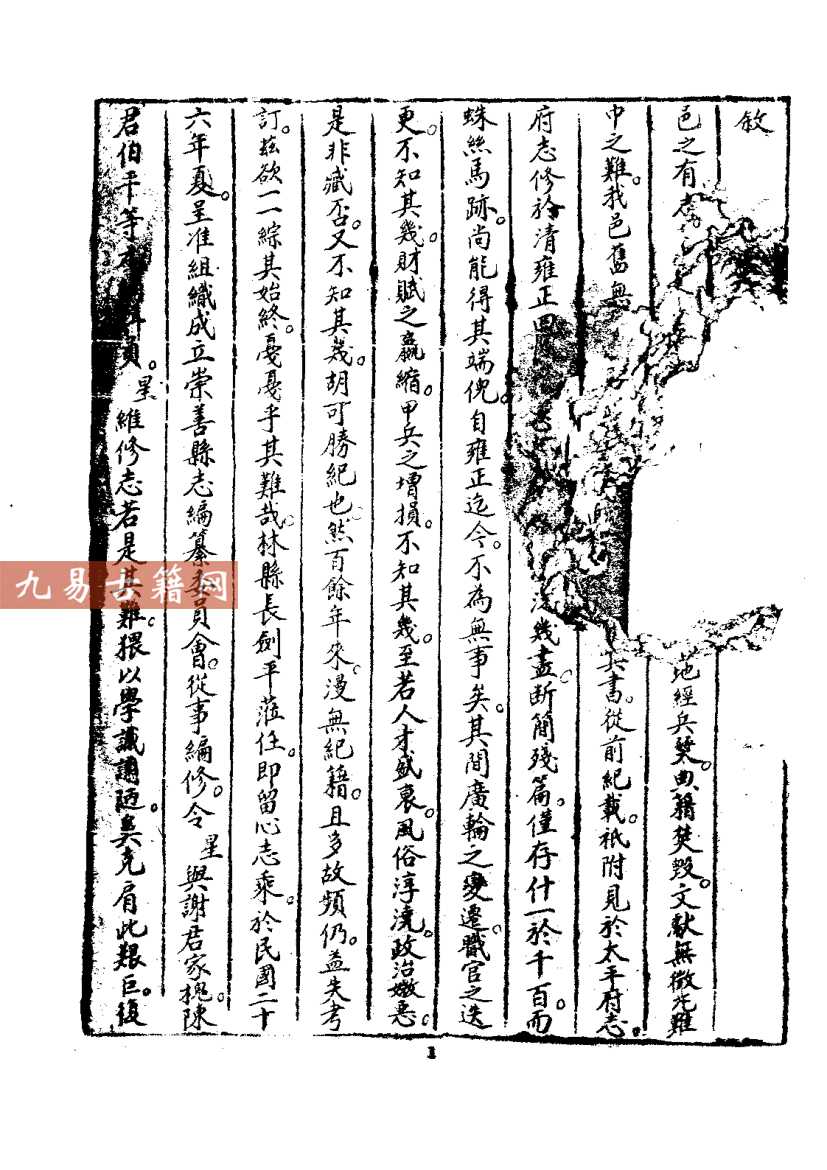 敘
邑之有志 地經兵燹。典籍焚毀。文獻無徵。尤難
中之難。我邑舊無 書。從前紀載。祇附見於太平府志。
府志修於清雍正四 幾盡。斷簡殘篇。僅存什一於千百。而
蛛絲馬跡。尚能得其端倪。自雍正迄今。不為無事矣。其間廣輪之變遷。職官之迭
更。不知其幾。財賦之贏縮。甲兵之增損。不知其幾。至若人才盛衰。風俗淳澆。政治媺惡。
是非臧否。又不知其幾。胡可勝紀也。然百餘年來。漫無紀籍。且多故頻仍。益失考
訂。茲欲一一綜其始終。戞戞乎其難哉。林縣長劍平蒞任。即留心志乘。於民國二十
六年夏。呈准組織成立崇善縣志編纂委員會。從事編修。令星與謝君家槐陳
君伯平等 員。星維修志若是其難。猥以學識譾陋。奚克肩此艱巨。復
九易古籍网
1